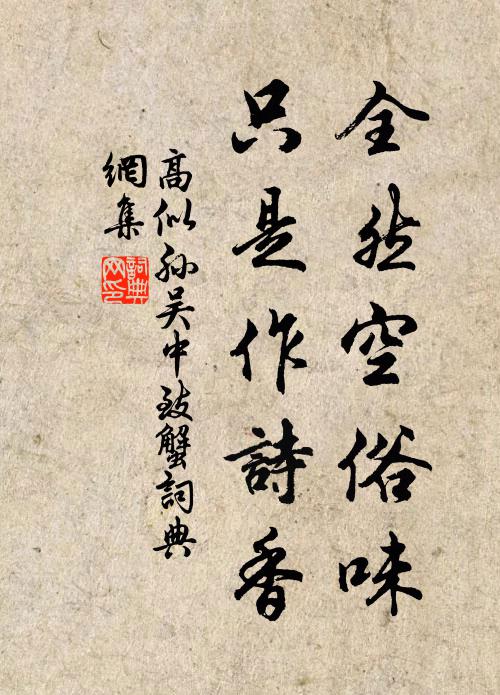 全然空俗味
只是作詩香
高似孫吴中致蟹詞典
網集
詞典
网印